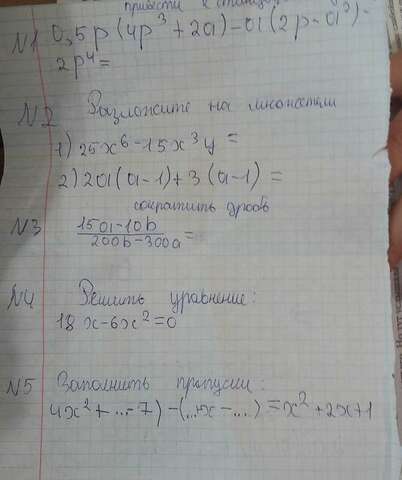 привести к станда
N1 0,5p(4p³+2a)-a(2p-a³)-
2p⁴=
N2 Разложите на множители
1) 25x⁶-15x³y=
2) 2a(a-1)+3(a-1)=
сократить дробь
N3 15a-10b
200b-300a =
N4 Решить уравнение:
18x-6x²=0
N5 Заполнить пропуски:
4x²+...-7)-(...x-...)=x²+2x+1